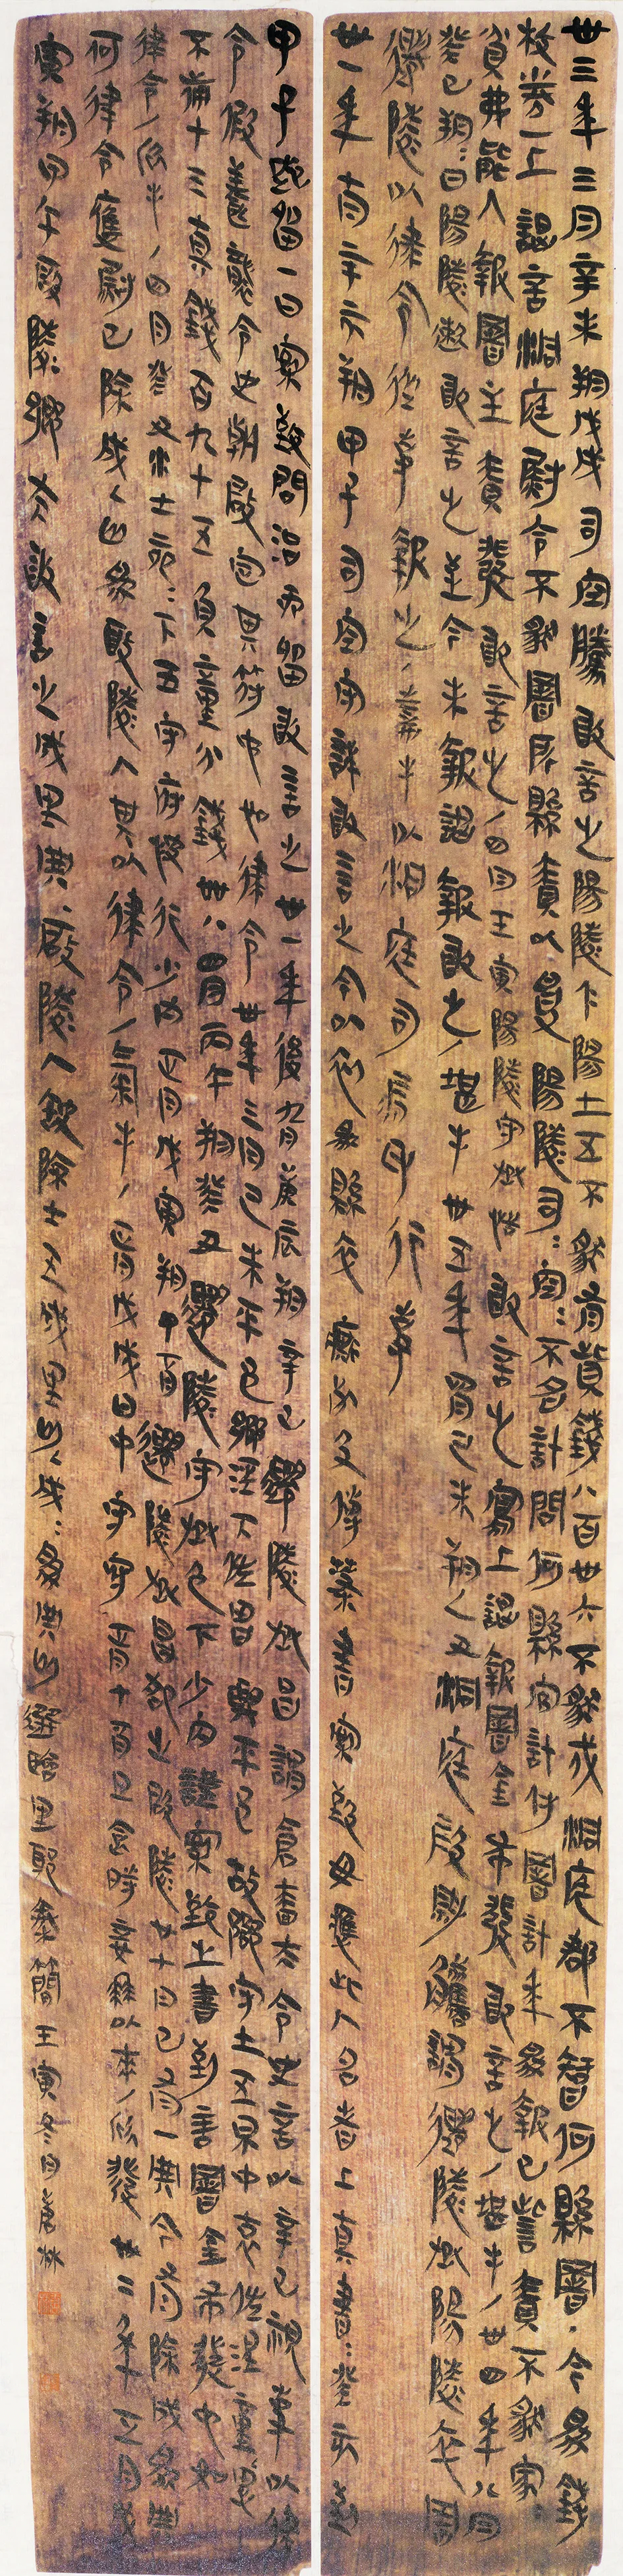 卅三年三月辛未朔戊戌司空騰敢言之陽陵下陽士五不識有貲錢八百卅六不識戍洞庭郡不智何縣署·今為錢
校券一上謁言洞庭尉令不識署所縣責以受陽陵司=空=不名計問何縣官計付署計年為報已訾責不識家=
貧弗能入報署主責發敢言之/四月壬寅陽陵守丞恬敢言之寫上謁報署金布發敢言之/堪手/卅四年八月
癸巳朔=日陽陵遬敢言之至今未報謁報敢之/堪手卅五年四月己未朔乙丑洞庭叚尉觿謂遷陵丞陽陵卒署
遷陵以律令從事報之/嘉手以洞庭司馬印行事
卅一年二月辛亥朔甲子司空守詳敢言之今以初為縣卒廝死及傳槥書案致毋應此人名者上真書=癸亥到
甲子起留一日案致問治而留敢言之卅一年後九月庚辰朔辛巳遷陵丞昌謂倉嗇夫令史言以辛巳視事以律
令假養襲令史朝啟定其符它如律令卅年三月己未平邑鄉涇下佐昌與平邑故鄉守士五中哀佐涇童
不備十三真錢百九十五負童分錢卅八四月丙午朔癸丑遷陵守丞色下少內謹案致之書到言署金布發它如
律令/欣手/四月癸丑水十一刻=下五守府快行少內正月戊寅朔丁酉遷陵丞昌卻之啟陵廿七戶已有一典今有除成為典
何律令應尉已除成匄為啟陵人其以律令/氣手/正月戊戌日中守守正月丁酉旦食時妾冉以來/欣發卅二年正月戊
寅朔甲午啟陵鄉夫敢言之成里典、啟陵人缺除士五成里匄成=為典匄選臨里耶秦簡壬寅冬月蒼林